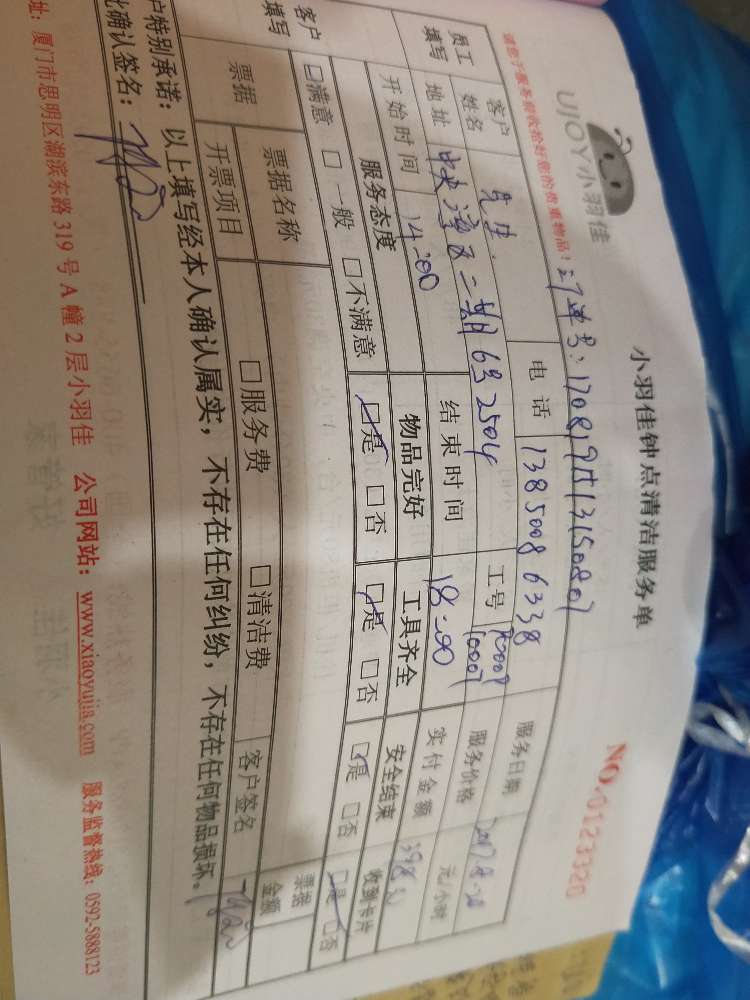 UJOY小羽佳
小羽佳钟点清洁服务单
NO.0123320
请您于服务前收拾好您的贵重物品!
订单号:
员工填写 客户姓名 先生 电话 13850086338 服务日期
地址 中央湾区二期6号2504 工号 服务价格 元/小时
开始时间 14:00 结束时间 18:00 实付金额
客户填写 服务态度 物品完好 工具齐全 安全结束 收到卡片
□满意 □一般 □不满意 □是 □否 □是 □否 □是 □否 □是 □否
票据 票据名称 □服务费 □清洁费 票据金额
开票项目 客户签名
户特别承诺:以上填写经本人确认属实,不存在任何纠纷,不存在任何物品损坏。
此确认签名:
址:厦门市思明区湖滨东路319号A幢2层小羽佳 公司网站:www.xiaoyujia.com 服务监督热线:0592-5888123